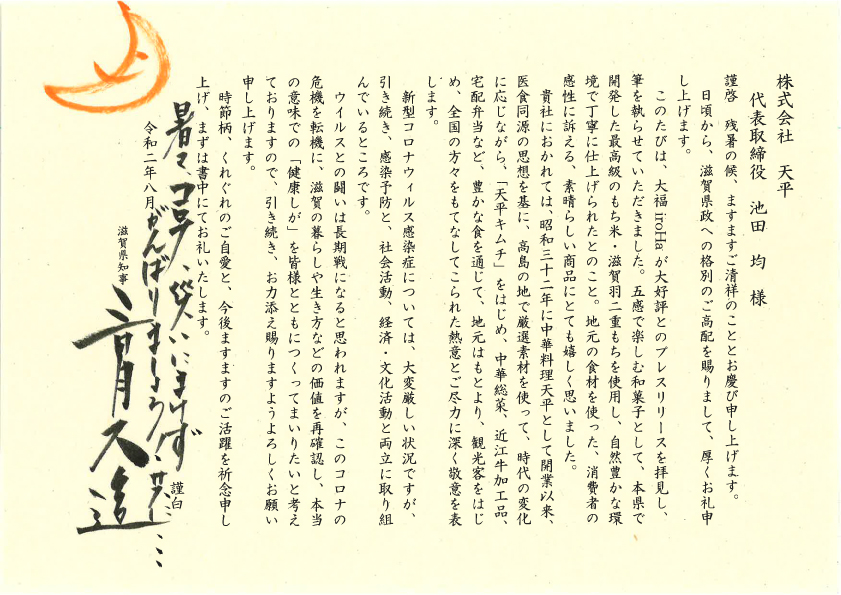 株式会社　天平
代表取締役　池田　均　様
謹啓　残暑の候、ますますご清祥のこととお慶び申し上げます。
日頃から、滋賀県政への格別のご高配を賜りまして、厚くお礼申
し上げます。
このたびは、大福 iroHa が大好評とのプレスリリースを拝見し、
筆を執らせていただきました。五感で楽しむ和菓子として、本県で
開発した最高級のもち米・滋賀羽二重もちを使用し、自然豊かな環
境で丁寧に仕上げられたとのこと。地元の食材を使った、消費者の
感性に訴える、素晴らしい商品にとても嬉しく思いました。
貴社におかれては、昭和三十二年に中華料理天平として開業以来、
医食同源の思想を基に、高島の地で厳選素材を使って、時代の変化
に応じながら、「天平キムチ」をはじめ、中華総菜、近江牛加工品、
宅配弁当など、豊かな食を通じて、地元はもとより、観光客をはじ
め、全国の方々をもてなしてこられた熱意とご尽力に深く敬意を表
します。
新型コロナウィルス感染症については、大変厳しい状況ですが、
引き続き、感染予防と、社会活動、経済・文化活動と両立に取り組
んでいるところです。
ウイルスとの闘いは長期戦になると思われますが、このコロナの
危機を転機に、滋賀の暮らしや生き方などの価値を再確認し、本当
の意味での「健康しが」を皆様とともにつくってまいりたいと考え
ておりますので、引き続き、お力添え賜りますようよろしくお願い
申し上げます。
時節柄、くれぐれのご自愛と、今後ますますのご活躍を祈念申し
上げ、まずは書中にてお礼いたします。
謹白
暑さ、コロナ、災いにまけず
がんばりましょう
令和二年八月
滋賀県知事
三日月大造